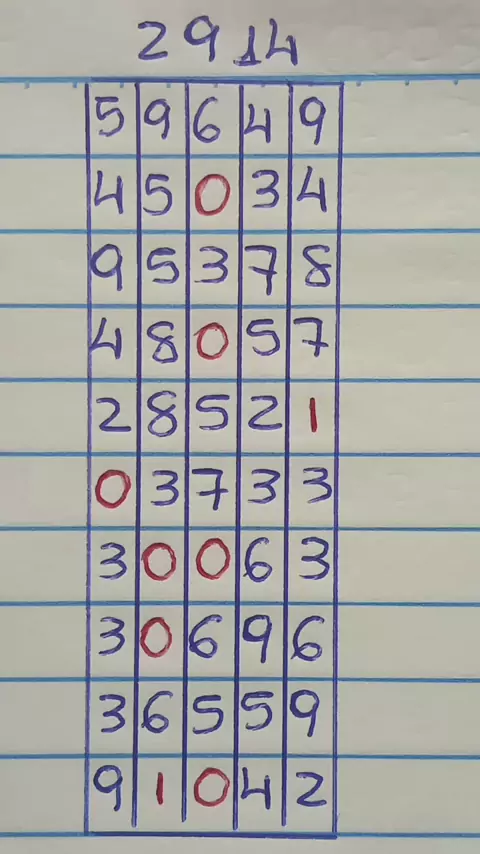 2914
5 9 6 4 9
4 5 0 3 4
9 5 3 7 8
4 8 0 5 7
2 8 5 2 1
0 3 7 3 3
3 0 0 6 3
3 0 6 9 6
3 6 5 5 9
9 1 0 4 2